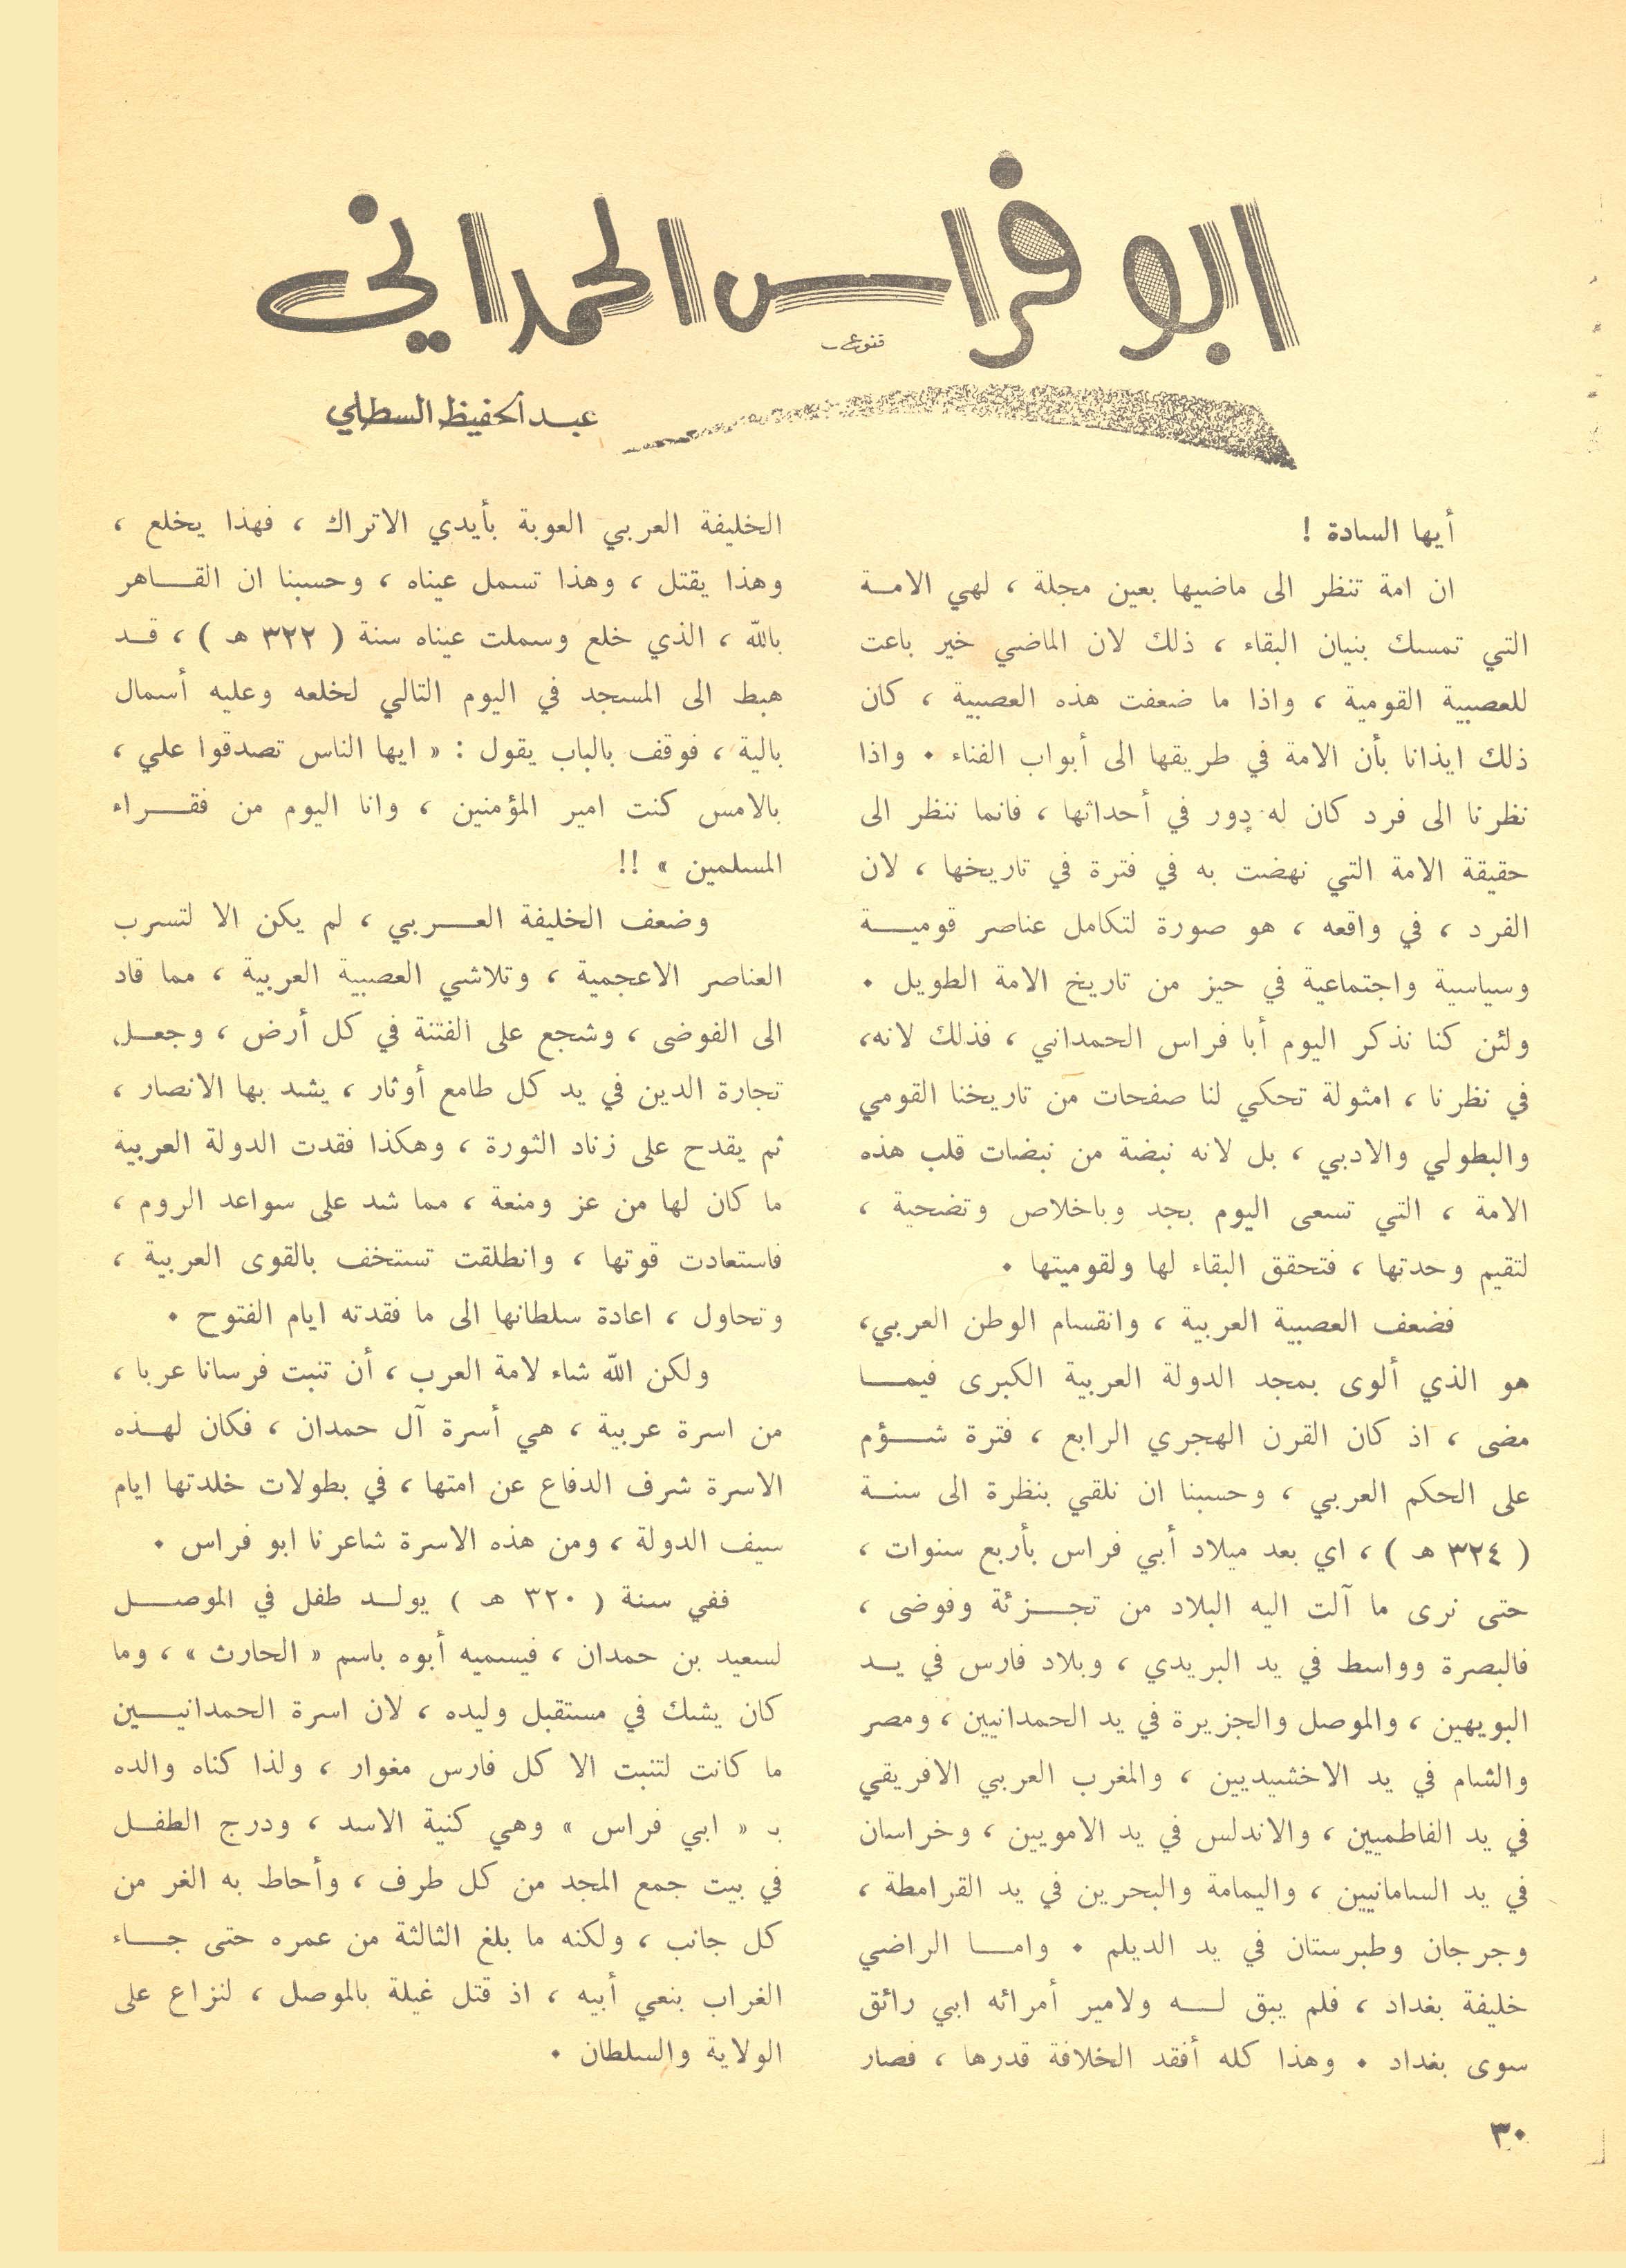 ابو فراس الحمداني
عبد الحفيظ السطلي
أيها السادة !
ان امة تنظر الى ماضيها بعين مجلة ، لهي الامة
التي تمسك بنيان البقاء ، ذلك لان الماضي خير باعث
للعصبية القومية ، واذا ما ضعفت هذه العصبية ، كان
ذلك ايذانا بأن الامة في طريقها الى أبواب الفناء . واذا
نظرنا الى فرد كان له دور في أحداثها ، فانما ننظر الى
حقيقة الامة التي نهضت به في فترة في تاريخها ، لان
الفرد ، في واقعه ، هو صورة لتكامل عناصر قومية
وسياسية واجتماعية في حيز من تاريخ الامة الطويل .
ولئن كنا نذكر اليوم أبا فراس الحمداني ، فذلك لانه،
في نظرنا ، امثولة تحكي لنا صفحات من تاريخنا القومي
والبطولي والادبي ، بل لانه نبضة من نبضات قلب هذه
الامة ، التي تسعى اليوم بجد وباخلاص وتضحية ،
لتقيم وحدتها ، فتحقق البقاء لها ولقوميتها .
فضعف العصبية العربية ، وانقسام الوطن العربي،
هو الذي ألوى بمجد الدولة العربية الكبرى فيما
مضى ، اذ كان القرن الهجري الرابع ، فترة شؤم
على الحكم العربي ، وحسبنا ان نلقي بنظرة الى سنة
( ٣٢٤ هـ ) ، اي بعد ميلاد أبي فراس بأربع سنوات ،
حتى نرى ما آلت اليه البلاد من تجزئة وفوضى ،
فالبصرة وواسط في يد البريدي ، وبلاد فارس في يد
البويهين ، والموصل والجزيرة في يد الحمدانيين ، ومصر
والشام في يد الاخشيديين ، والمغرب العربي الافريقي
في يد الفاطميين ، والاندلس في يد الامويين ، وخراسان
في يد السامانيين ، واليمامة والبحرين في يد القرامطة ،
وجرجان وطبرستان في يد الديلم . واما الراضي
خليفة بغداد ، فلم يبق له ولامير أمرائه ابي رائق
سوى بغداد . وهذا كله أفقد الخلافة قدرها ، فصار
الخليفة العربي العوبة بأيدي الاتراك ، فهذا يخلع ،
وهذا يقتل ، وهذا تسمل عيناه ، وحسبنا ان القاهر
بالله ، الذي خلع وسملت عيناه سنة ( ٣٢٢ هـ ) ، قد
هبط الى المسجد في اليوم التالي لخلعه وعليه أسمال
بالية ، فوقف بالباب يقول : « ايها الناس تصدقوا علي ،
بالامس كنت امير المؤمنين ، وانا اليوم من فقراء
المسلمين » !!
وضعف الخليفة العربي ، لم يكن الا لتسرب
العناصر الاعجمية ، وتلاشي العصبية العربية ، مما قاد
الى الفوضى ، وشجع على الفتنة في كل أرض ، وجعل
تجارة الدين في يد كل طامع أوثار ، يشد بها الانصار ،
ثم يقدح على زناد الثورة ، وهكذا فقدت الدولة العربية
ما كان لها من عز ومنعة ، مما شد على سواعد الروم ،
فاستعادت قوتها ، وانطلقت تستخف بالقوى العربية ،
وتحاول ، اعادة سلطانها الى ما فقدته ايام الفتوح .
ولكن الله شاء لامة العرب ، أن تنبت فرسانا عربا ،
من اسرة عربية ، هي أسرة آل حمدان ، فكان لهذه
الاسرة شرف الدفاع عن امتها ، في بطولات خلدتها ايام
سيف الدولة ، ومن هذه الاسرة شاعرنا ابو فراس .
ففي سنة ( ٣٢٠ هـ ) يولد طفل في الموصل
لسعيد بن حمدان ، فيسميه أبوه باسم « الحارث » ، وما
كان يشك في مستقبل وليده ، لان اسرة الحمدانيين
ما كانت لتنبت الا كل فارس مغوار ، ولذا كناه والده
بـ « ابي فراس » وهي كنية الاسد ، ودرج الطفل
في بيت جمع المجد من كل طرف ، وأحاط به الغر من
كل جانب ، ولكنه ما بلغ الثالثة من عمره حتى جاء
الغراب بنعي أبيه ، اذ قتل غيلة بالموصل ، لنزاع على
الولاية والسلطان .
٣٠